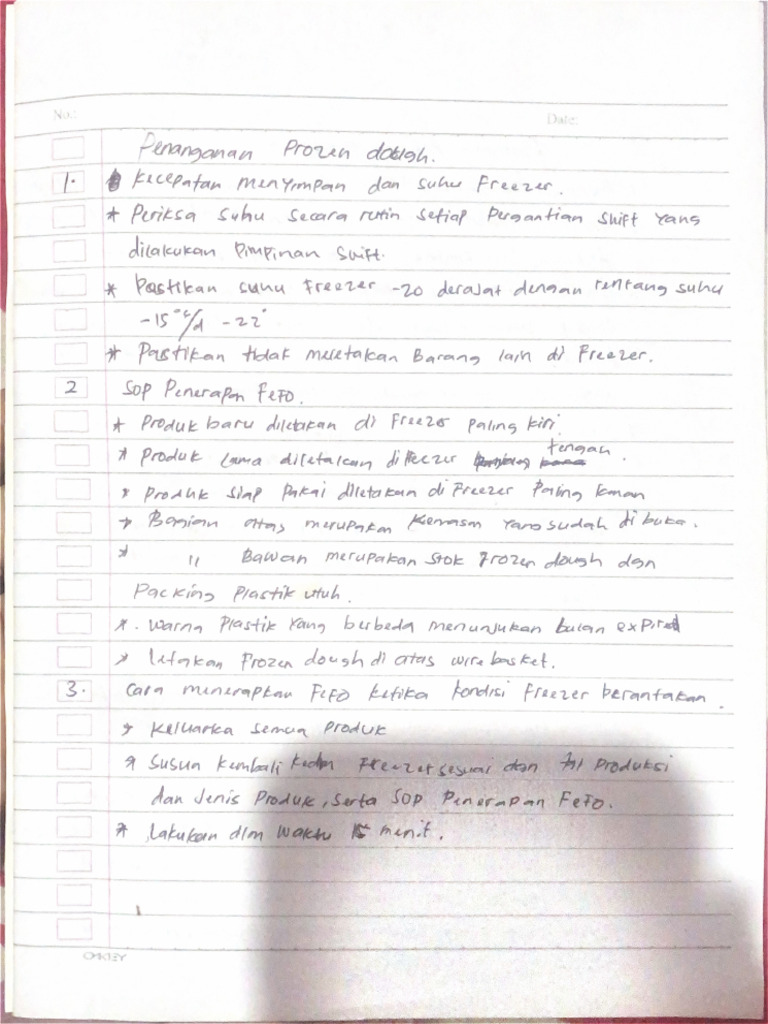 No.:
Date:
Penanganan Prozen dough.
1. Kecepatan menyimpan dan suhu Freezer.
* Periksa suhu secara rutin setiap Pergantian shift yang
dilakukan Pimpinan Swift.
* Pastikan suhu Freezer -20 derajat dengan rentang suhu
-15° c/d -22°
* Pastikan tidak meletakan Barang lain di Freezer.
2 SOP Penerapan FeFO.
* Produk baru diletakan di Freezer paling kiri.
* Produk Lama diletakan di Freezer tengah.
* Produk siap Pakai diletakan di Freezer Paling kanan
* Bagian atas merupakan Kemasan yang sudah di buka.
* " Bawah merupakan stok Frozen dough dgn
Packing Plastik utuh.
* . Warna Plastik yang berbeda menunjukan bulan expired
* letakan Frozen dough di atas wire basket.
3. Cara menerapkan FeFO ketika kondisi Freezer berantakan.
* Keluarka semua Produk
* Susun kembali Freezer sesuai dan tgl Produksi
dan Jenis Produk, serta SOP Penerapan FeFO.
* Lakukan dlm waktu 15 menit.